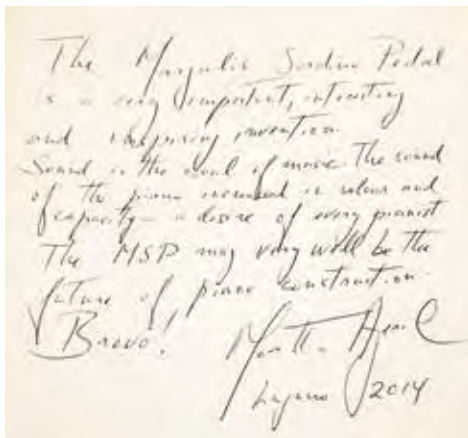 The Margulis Sordino Pedal
is a very important, interesting
and inspiring invention.
Sound is the soul of music. The sound
of the piano increased in colour and
capacity – a desire of every pianist
The MSP may very well be the
future of piano construction.
Bravo!
Lugano 2014